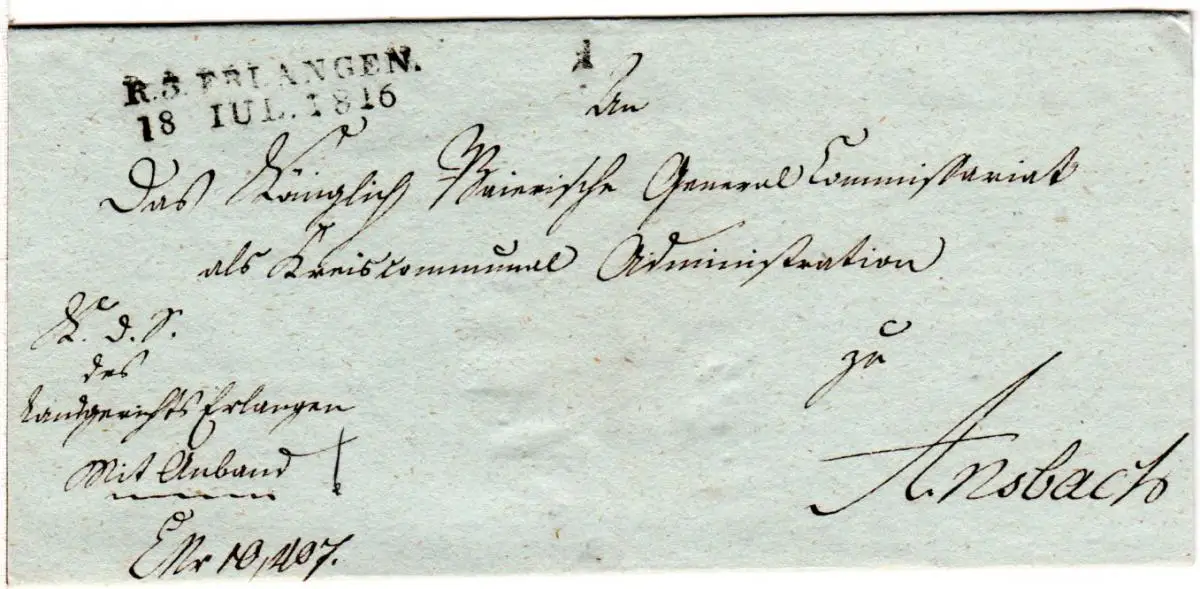 R.3. ERLANGEN.
18 IUL. 1816
1
An
Das Königlich Baierische General Commissariat
als Kreiscommunal Administration
zu
Ansbach
K. d. S.
des
Landgerichts Erlangen
Mit Anband
ENr 10,407.